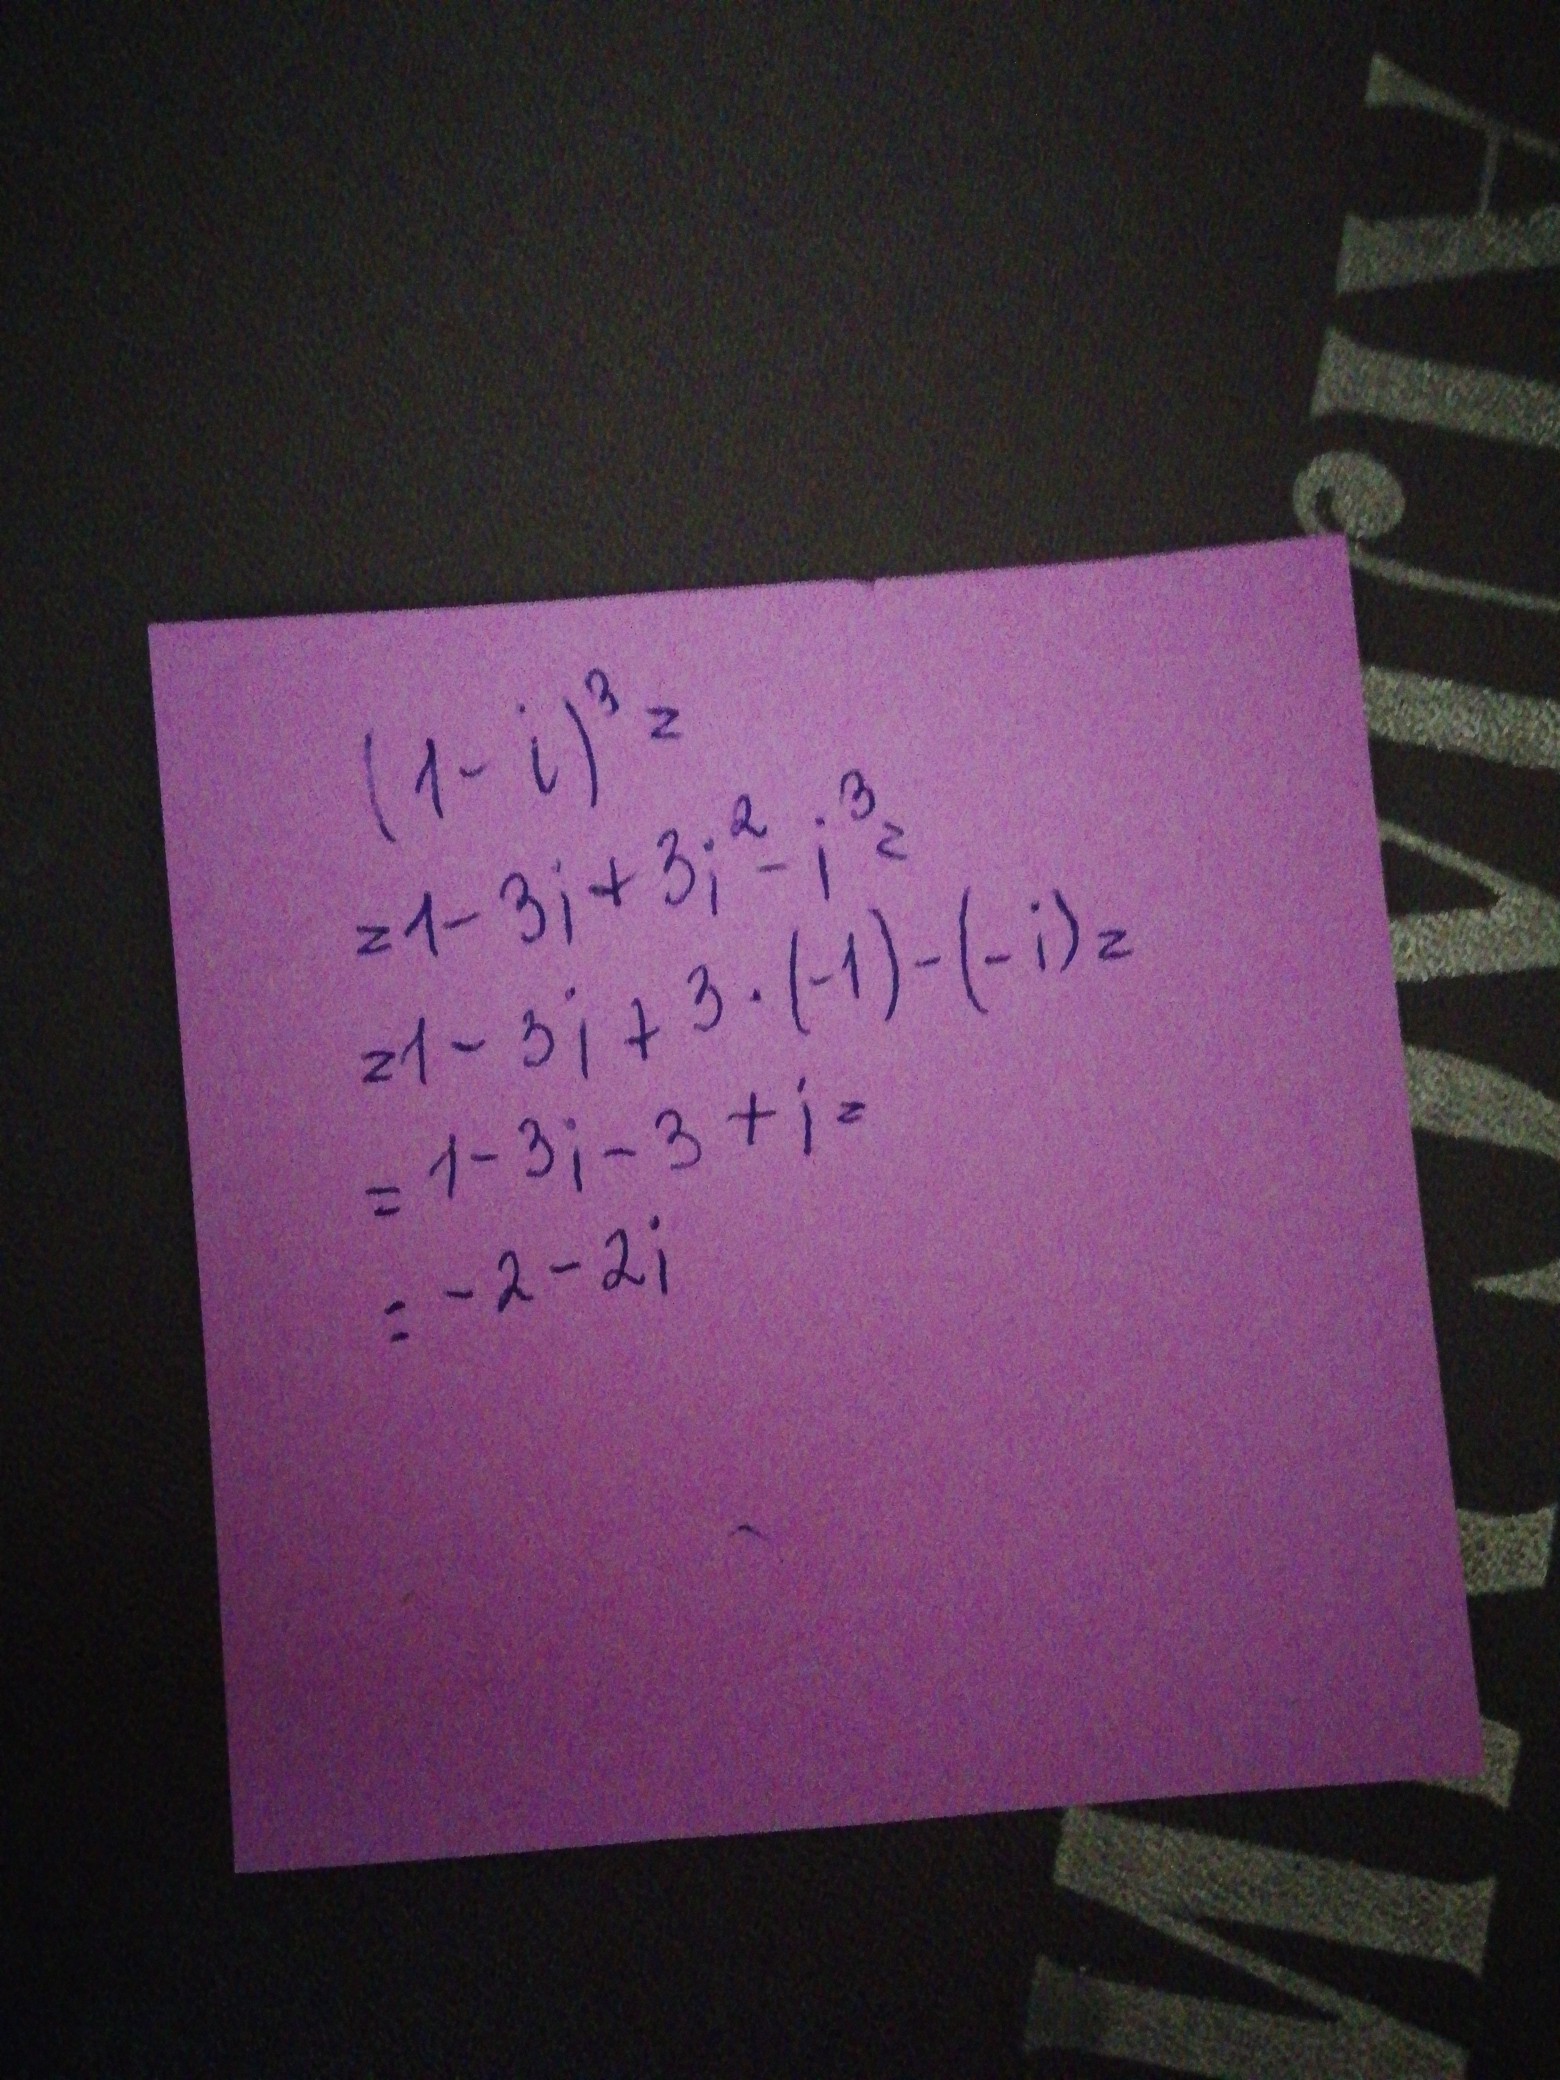 (1-i)³=
=1-3i+3i²-i³=
=1-3i+3·(-1)-(-i)=
=1-3i-3+i=
=-2-2i